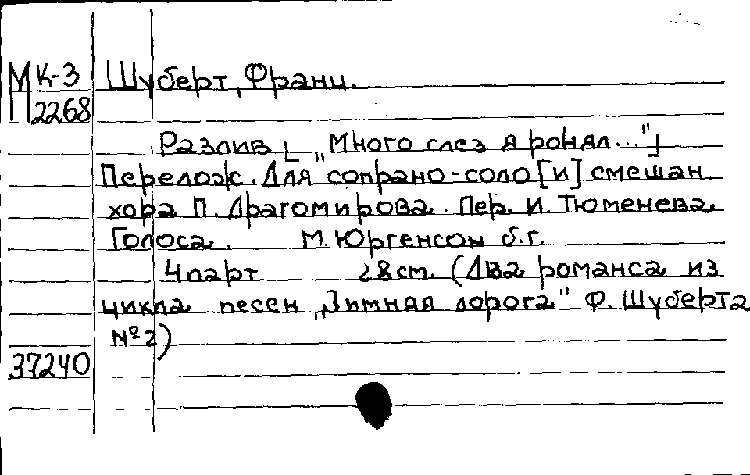 МК-3 Шуберт, Франц.
2268
Разлив [„Много слез я ронял..."]
Перелож. Для сопрано-соло [и] смешан
хора П. Драгомирова. Пер. И. Тюменева.
Голоса. М. Юргенсон б.г.
4 парт 28см. (Два романса из
цикла песен „Зимняя дорога" Ф. Шуберта
№2)
37240